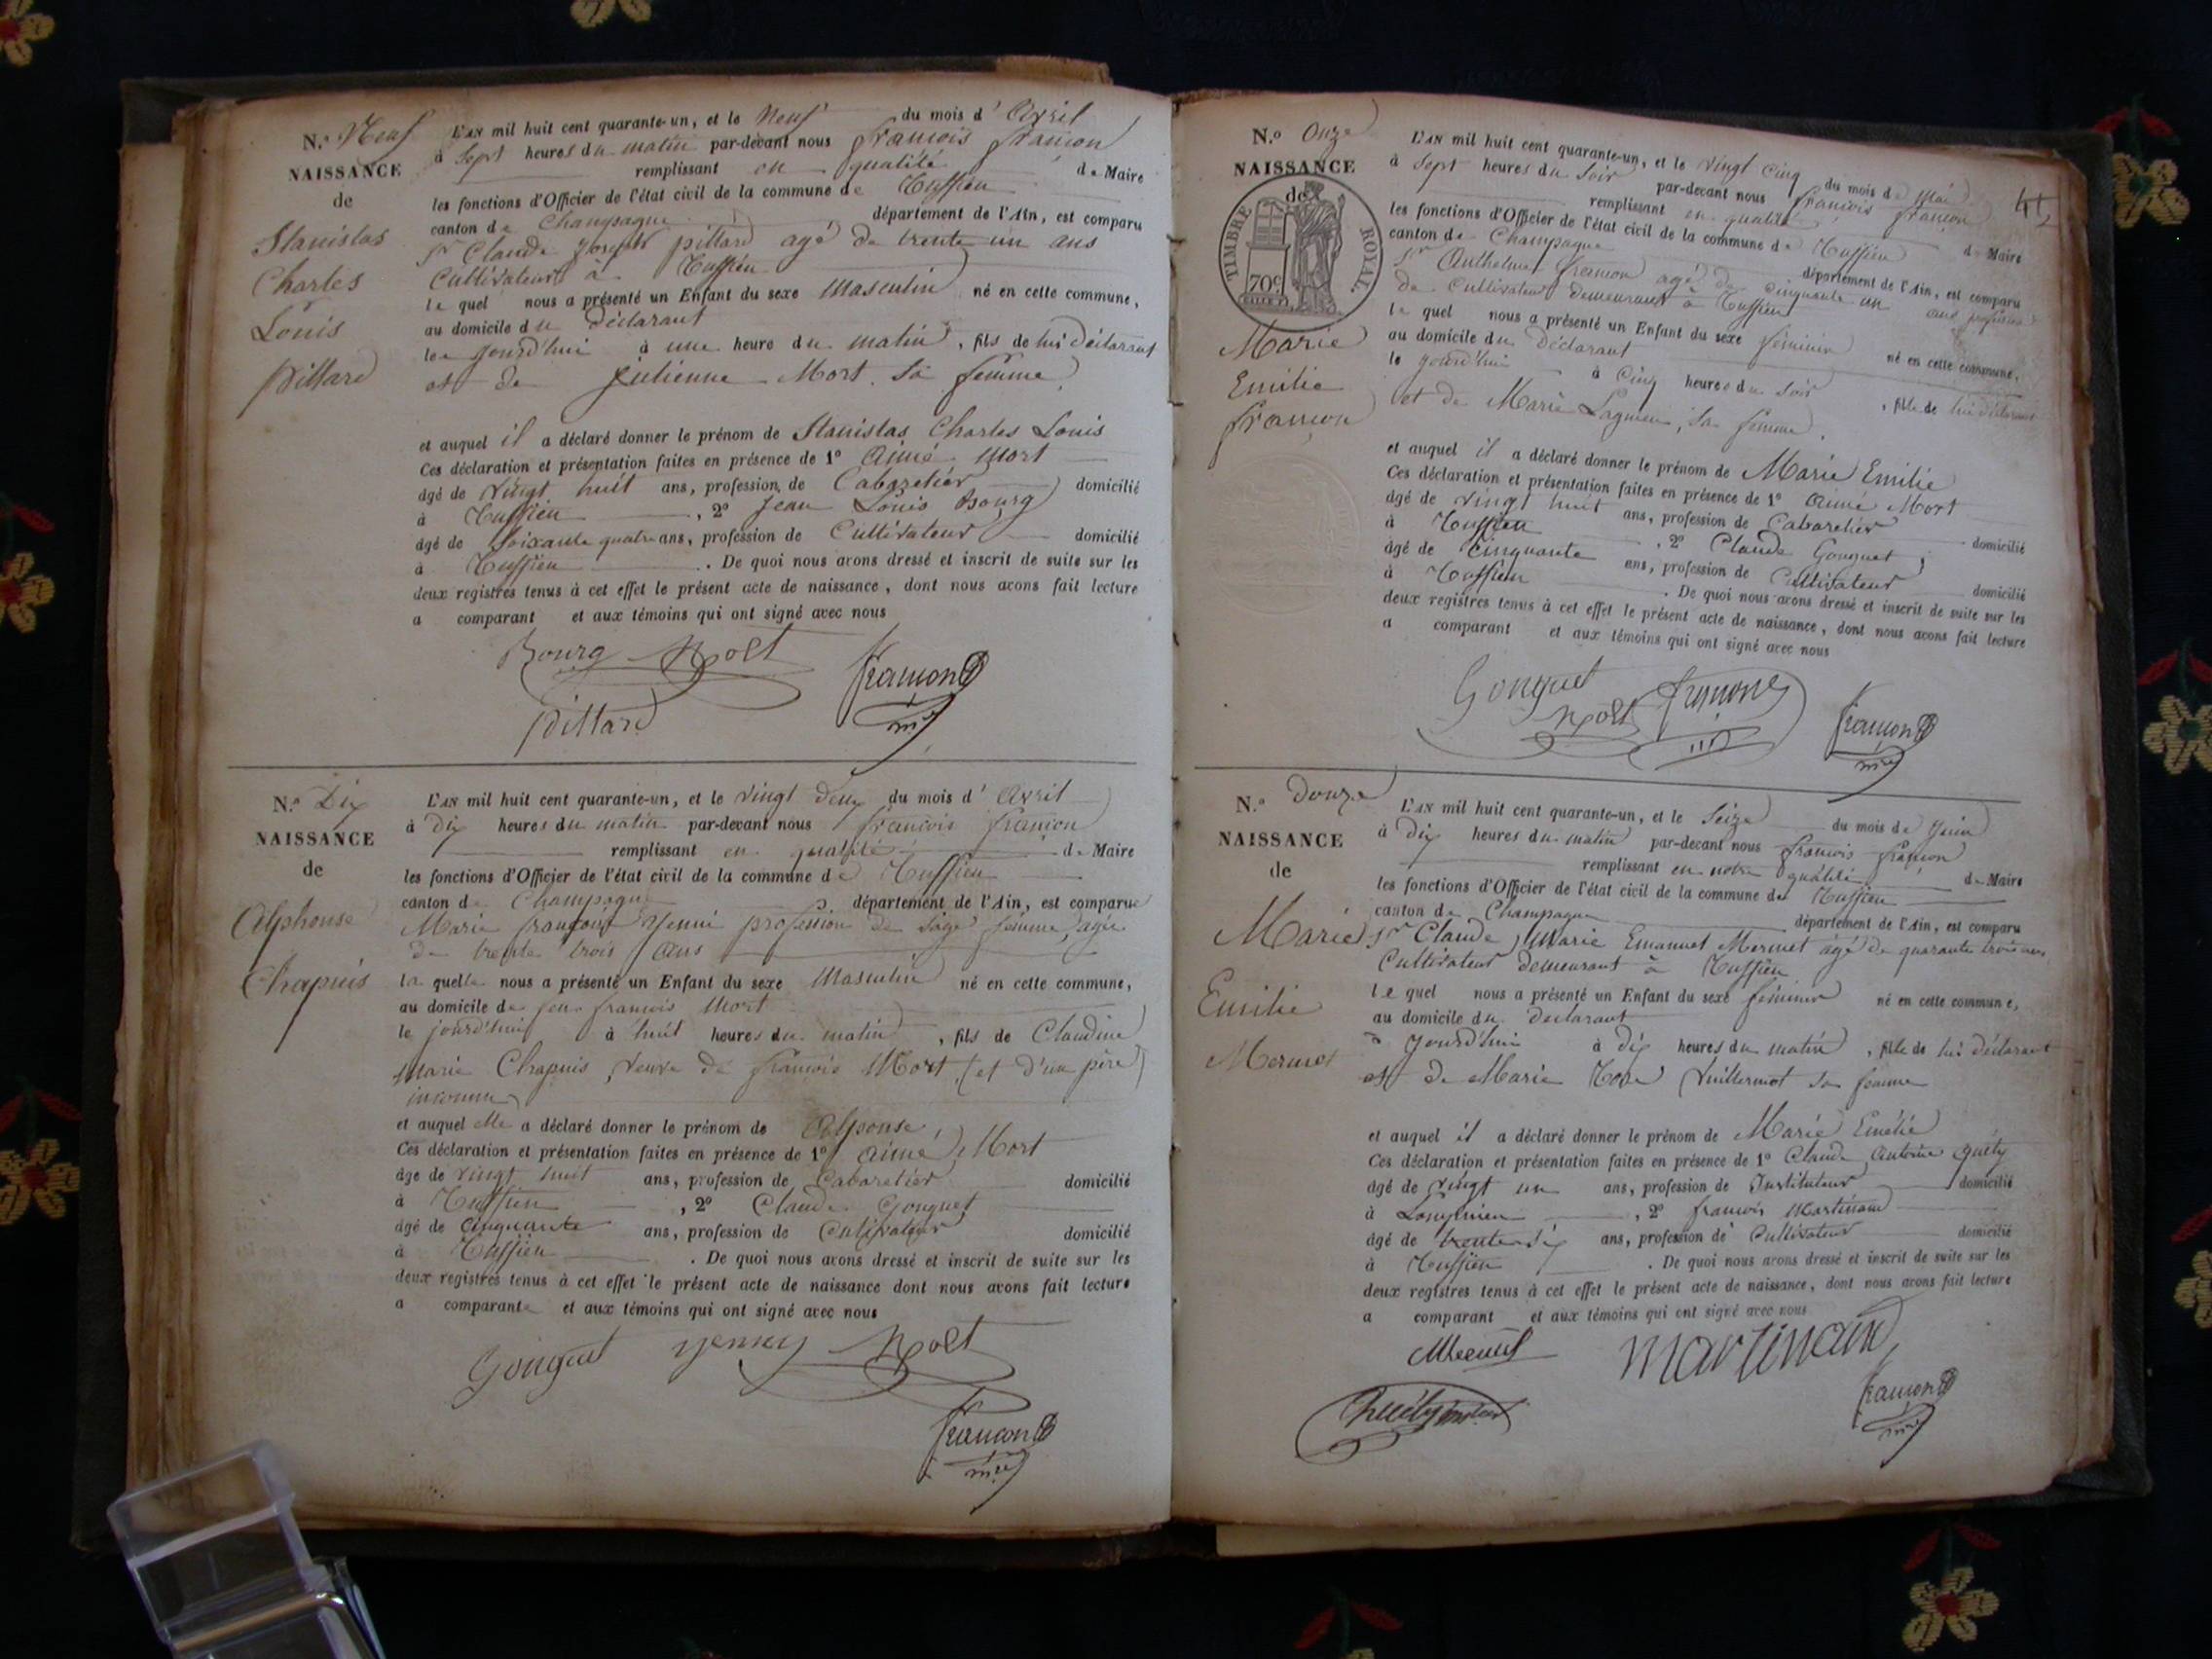 N.o Neuf
NAISSANCE
de
Stanislas
Charles
Louis
Pillard
L'AN mil huit cent quarante-un, et le Neuf du mois d' Avril
à Sept heures du matin par-devant nous françois françon
remplissant en qualité de Maire
les fonctions d'Officier de l'état civil de la commune de Ruffieu
canton de Champagne département de l'Ain, est comparu
Sr Claude Joseph pillard agé de trente un ans
Cultivateur à Ruffieu
le quel nous a présenté un Enfant du sexe Masculin né en cette commune,
au domicile du déclarant
le jourd'hui à une heure du matin, fils de lui déclarant
et de Julienne Mort sa femme,
et auquel il a déclaré donner le prénom de Stanislas Charles Louis
Ces déclaration et présentation faites en présence de 1o Aimé Mort
âgé de vingt huit ans, profession de Cabaretier domicilié
à Ruffieu, 2o Jean Louis Bourg
âgé de soixante quatre ans, profession de Cultivateur domicilié
à Ruffieu. De quoi nous avons dressé et inscrit de suite sur les
deux registres tenus à cet effet le présent acte de naissance, dont nous avons fait lecture
a comparant et aux témoins qui ont signé avec nous
Bourg Mort françon
Pillard mre
N.o Dix
NAISSANCE
de
Alphonse
Chapuis
L'AN mil huit cent quarante-un, et le vingt deux du mois d' Avril
à Dix heures du matin par-devant nous françois françon
remplissant en qualité de Maire
les fonctions d'Officier de l'état civil de la commune de Ruffieu
canton de Champagne département de l'Ain, est comparue
Marie françoise Yenni profession de Sage femme, agée
de trente trois ans
la quelle nous a présenté un Enfant du sexe Masculin né en cette commune,
au domicile de feu françois Mort
le jourd'hui à huit heures du matin, fils de Claudine
Marie Chapuis, veuve de françois Mort (et d'un père
inconnu)
et auquel elle a déclaré donner le prénom de Alponse,
Ces déclaration et présentation faites en présence de 1o aimé Mort
âgé de vingt huit ans, profession de Cabaretier domicilié
à Ruffieu, 2o Claude Gonguet
âgé de cinquante ans, profession de Cultivateur domicilié
à Ruffieu. De quoi nous avons dressé et inscrit de suite sur les
deux registres tenus à cet effet le présent acte de naissance dont nous avons fait lecture
a comparante et aux témoins qui ont signé avec nous
Gonguet yenny Mort
françon
mre
N.o Onze
NAISSANCE
de
TIMBRE ROYAL
70c
Marie
Emilie
françon
L'AN mil huit cent quarante-un, et le vingt cinq du mois de Mai
à Sept heures du Soir par-devant nous françois françon
remplissant en qualité de Maire
les fonctions d'Officier de l'état civil de la commune de Ruffieu
canton de Champagne département de l'Ain, est comparu
Sr Anthelme françon agé de cinquante un ans profession
de Cultivateur demeurant à Ruffieu
le quel nous a présenté un Enfant du sexe féminin né en cette commune,
au domicile du Déclarant
le jourd'hui à Cinq heures du Soir, fille de lui déclarant
et de Marie Lagnieu, sa femme,
et auquel il a déclaré donner le prénom de Marie Emilie
Ces déclaration et présentation faites en présence de 1o aimé Mort
âgé de vingt huit ans, profession de Cabaretier domicilié
à Ruffieu, 2o Claude Gonguet
âgé de cinquante ans, profession de Cultivateur domicilié
à Ruffieu. De quoi nous avons dressé et inscrit de suite sur les
deux registres tenus à cet effet le présent acte de naissance, dont nous avons fait lecture
a comparant et aux témoins qui ont signé avec nous
Gonguet françon
Mort françon
mre
N.o douze
NAISSANCE
de
Marie
Emilie
Mermet
L'AN mil huit cent quarante-un, et le Seize du mois de Juin
à Dix heures du matin par-devant nous françois françon
remplissant en notre qualité de Maire
les fonctions d'Officier de l'état civil de la commune de Ruffieu
canton de Champagne département de l'Ain, est comparu
Sr Claude Marie Emanuel Mermet agé de quarante trois ans
Cultivateur demeurant à Ruffieu
le quel nous a présenté un Enfant du sexe féminin né en cette commune,
au domicile du déclarant
jourd'hui à dix heures du matin, fille de lui déclarant
et de Marie Rose Vuillermot sa femme
et auquel il a déclaré donner le prénom de Marie Emélie
Ces déclaration et présentation faites en présence de 1o Claude Antoine Guély
âgé de vingt un ans, profession de Instituteur domicilié
à Longmieu, 2o françois Martinand
âgé de trente dix ans, profession de Cultivateur domicilié
à Ruffieu. De quoi nous avons dressé et inscrit de suite sur les
deux registres tenus à cet effet le présent acte de naissance, dont nous avons fait lecture
a comparant et aux témoins qui ont signé avec nous
Martinand
françon
mre